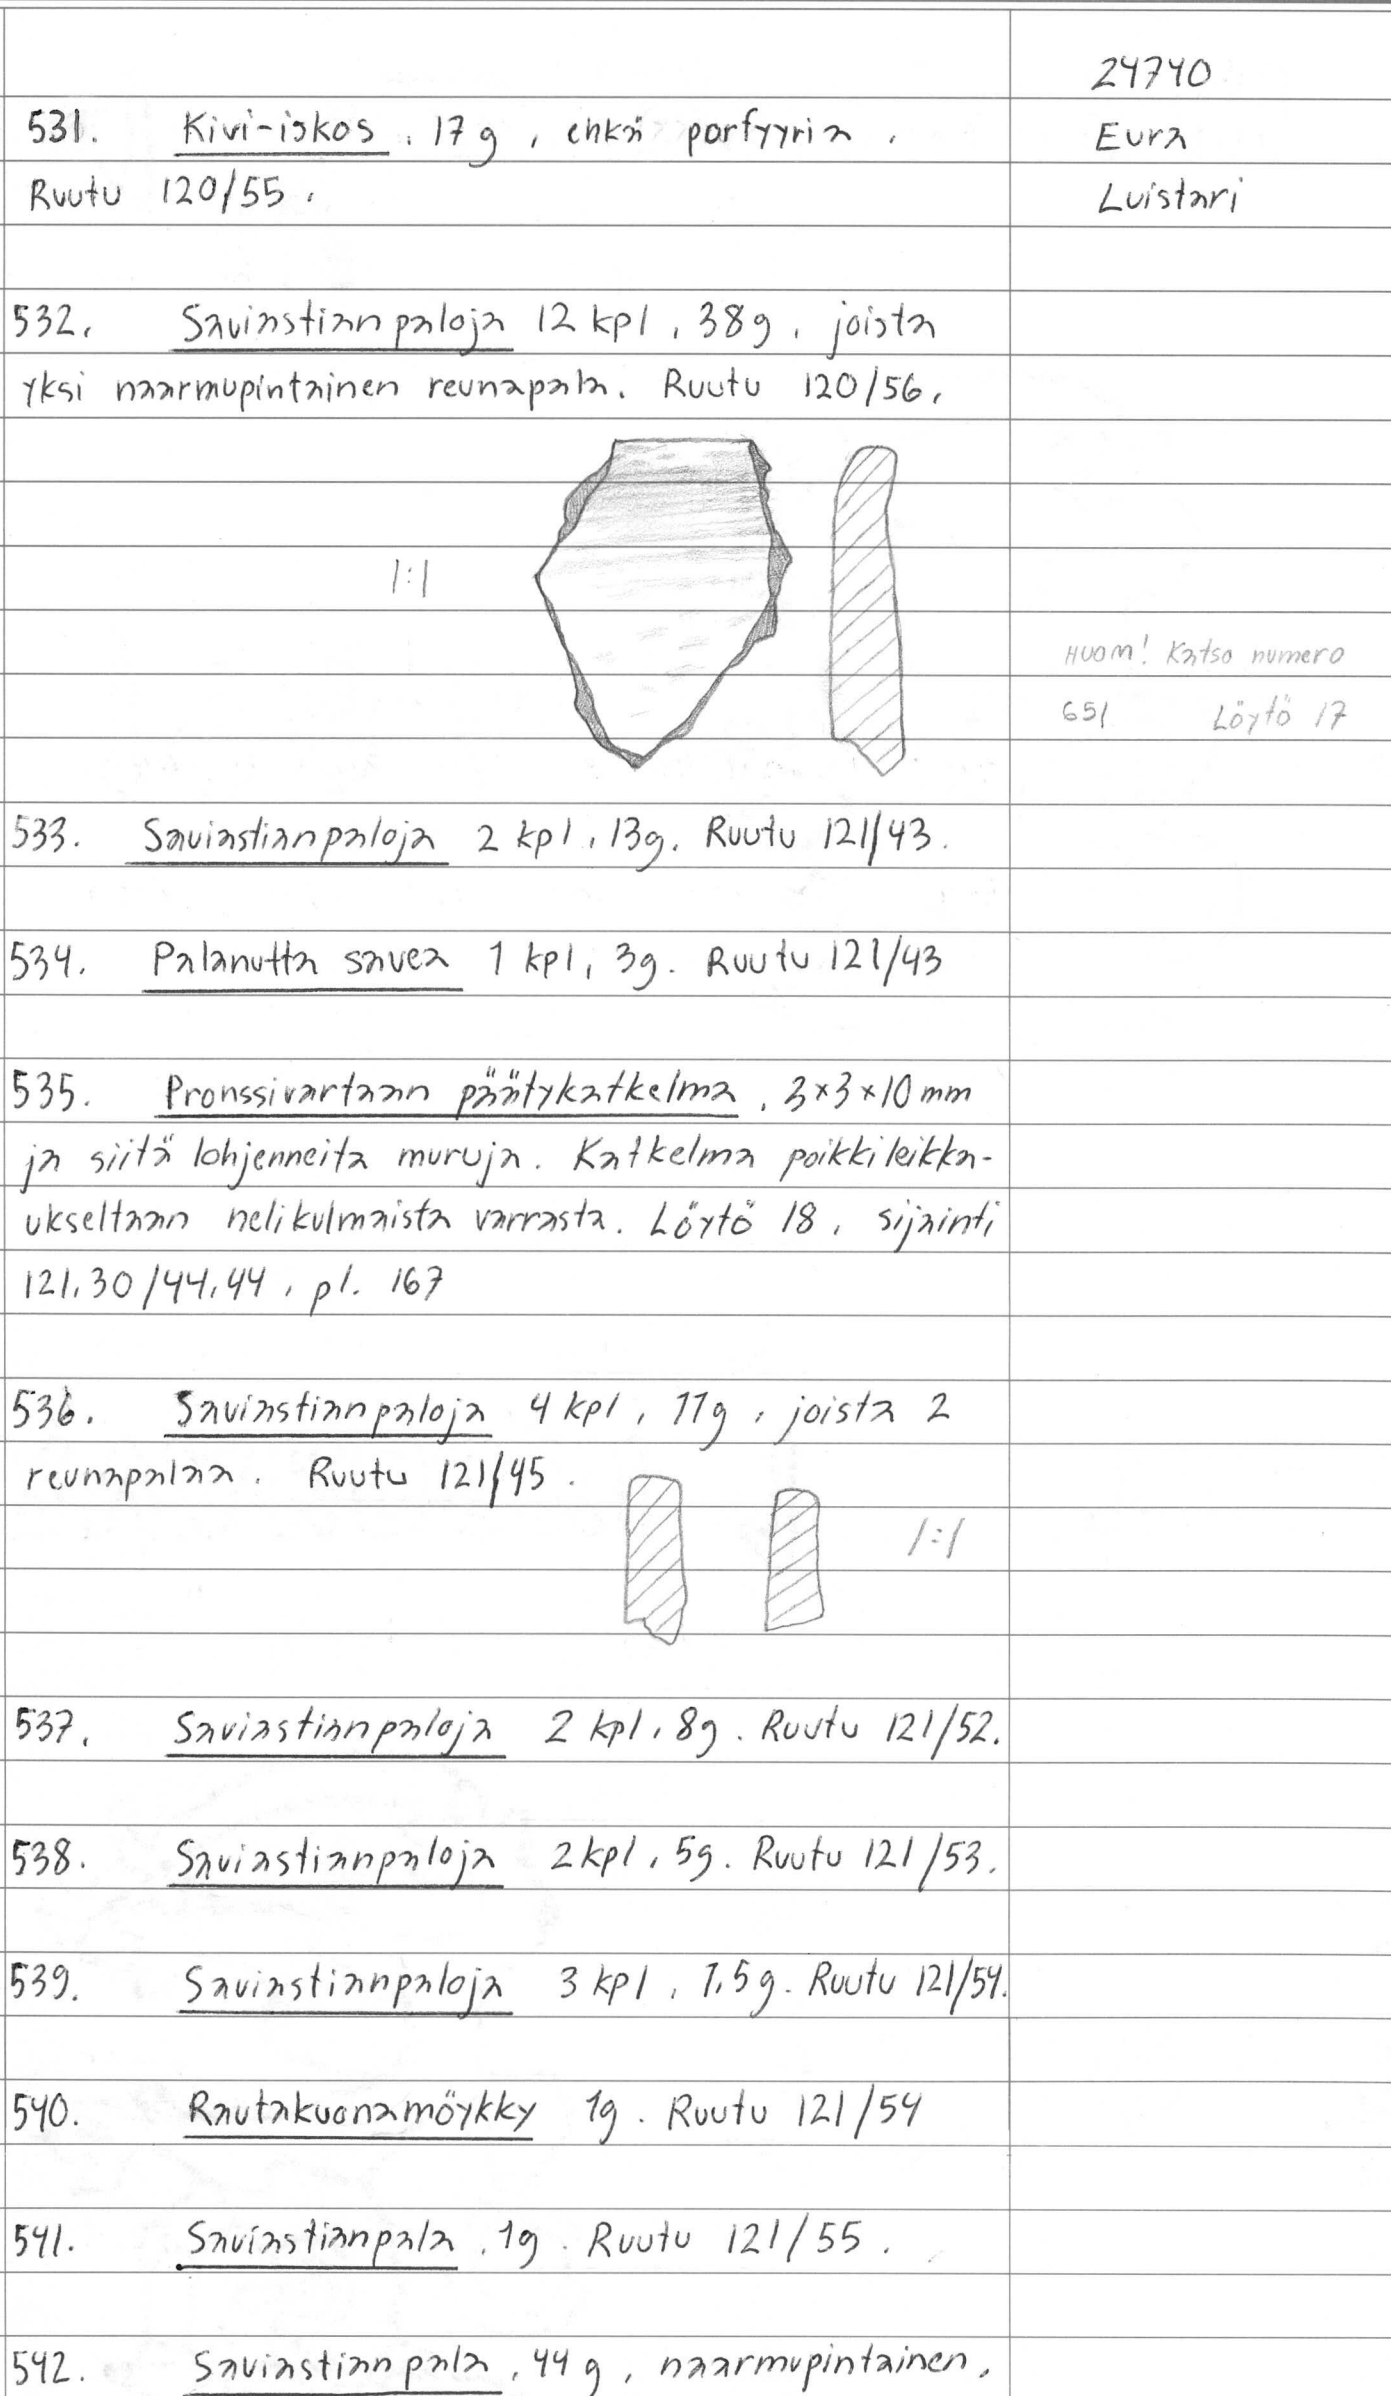 24740
531. Kivi-iskos, 17g, ehkä porfyyria.
Eura
Ruutu 120/55.
Luistari
532. Saviastianpaloja 12 kpl, 38g, joista
yksi naarmupintainen reunapala. Ruutu 120/56.
1:1
HUOM! Katso numero
651 Löytö 17
533. Saviastianpaloja 2 kpl, 13g. Ruutu 121/43.
534. Palanutta savea 1 kpl, 3g. Ruutu 121/43
535. Pronssivartaan päätykatkelma, 3×3×10mm
ja siitä lohjenneita muruja. Katkelma poikkileikka-
ukseltaan nelikulmaista varrasta. Löytö 18, sijainti
121,30/44,44, pl. 167
536. Saviastianpaloja 4 kpl, 11g, joista 2
reunapalaa. Ruutu 121/45.
1:1
537. Saviastianpaloja 2 kpl, 8g. Ruutu 121/52.
538. Saviastianpaloja 2kpl, 5g. Ruutu 121/53.
539. Saviastianpaloja 3 kpl, 1,5g. Ruutu 121/54.
540. Rautakuonamöykky 1g. Ruutu 121/54
541. Saviastianpala, 1g. Ruutu 121/55.
542. Saviastianpala, 44g, naarmupintainen,